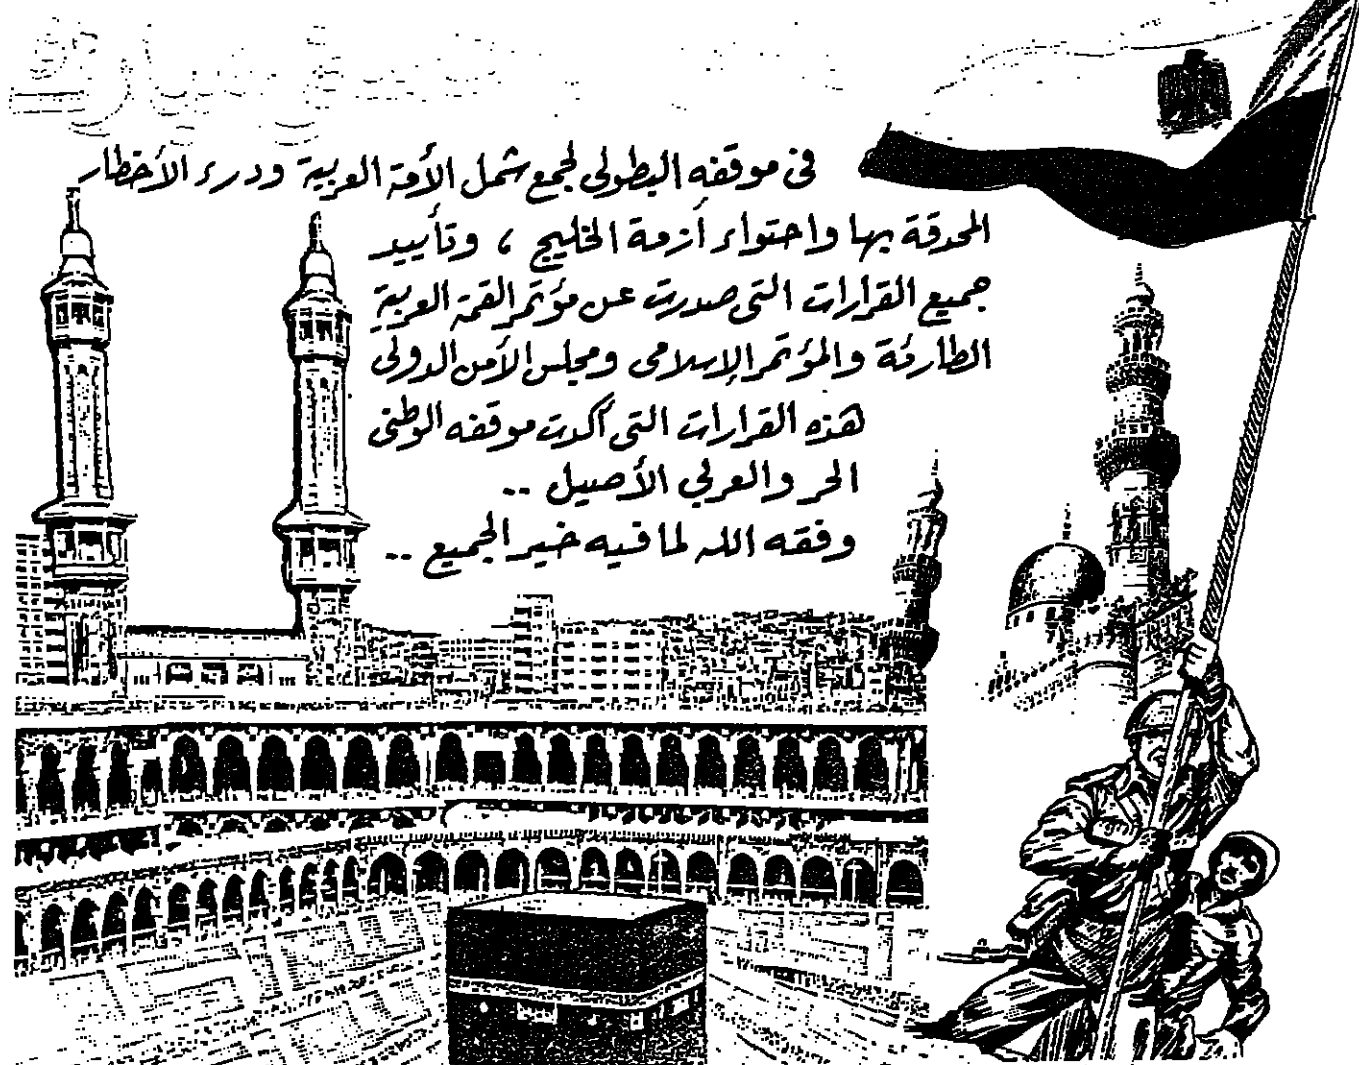 مبارك
فى موقفه البطولى لجمع شمل الأمة العربية ودرء الأخطار
المحدقة بها واحتواء أزمة الخليج ، وتأييد
جميع القرارات التى صدرت عن مؤتمر القمة العربية
الطارئة والمؤتمر الإسلامى ومجلس الأمن الدولى
هذه القرارات التى أكدت موقفه الوطنى
الحر والعربي الأصيل ..
وفقه الله لما فيه خير الجميع ..